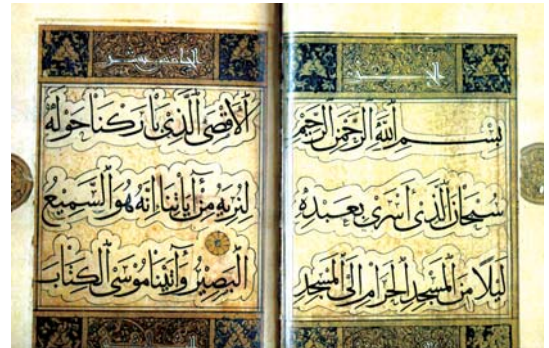 الجز
بسم الله الرحمن الرحيم
سبحان الذي أسرى بعبده
ليلا من المسجد الحرام إلى المسجد
الخامس عشر
الأقصى الذي باركنا حوله
لنريه من آياتنا إنه هو السميع
البصير وآتينا موسى الكتاب